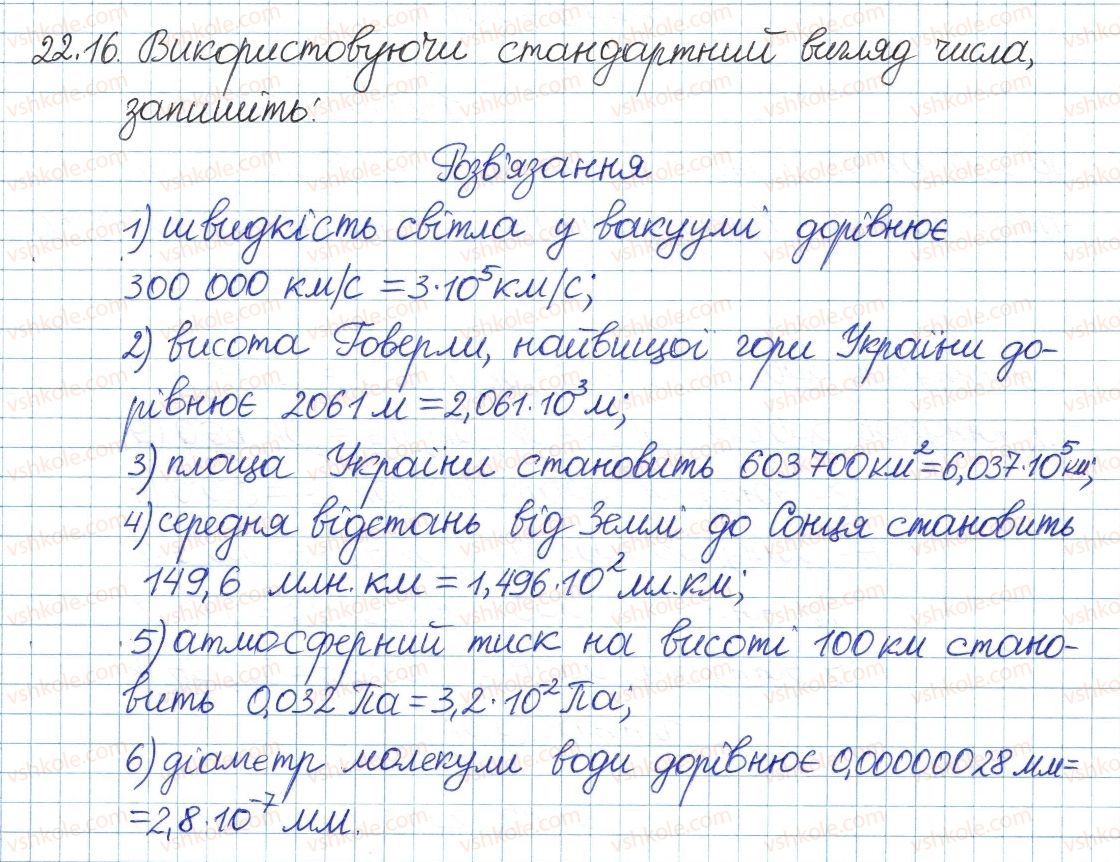 22.16. Використовуючи стандартний вигляд числа,
запишіть:
Розв'язання
1) швидкість світла у вакуумі дорівнює
300 000 км/с = 3·10⁵ км/с;
2) висота Говерли, найвищої гори України до-
рівнює 2061 м = 2,061·10³ м;
3) площа України становить 603 700 км² = 6,037·10⁵ км;
4) середня відстань від Землі до Сонця становить
149,6 млн. км = 1,496·10² мл.км;
5) атмосферний тиск на висоті 100 км стано-
вить 0,032 Па = 3,2·10⁻² Па;
6) діаметр молекули води дорівнює 0,00000028 мм =
= 2,8·10⁻⁷ мм.